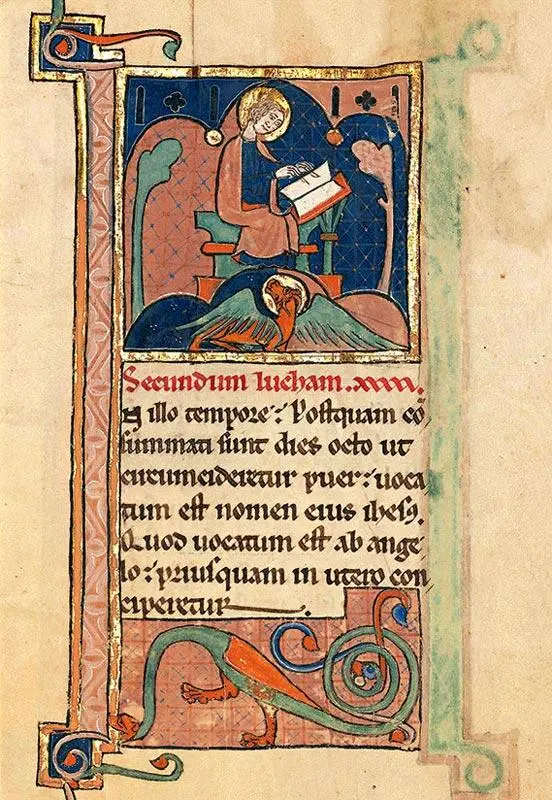 Secundum lucham.
In illo tempore: Postquam cō
summati sunt dies octo ut
circumcideretur puer: uoca
tum est nomen eius ihesꝰ.
Quod uocatum est ab ange
lo: priusquam in utero con
ciperetur.